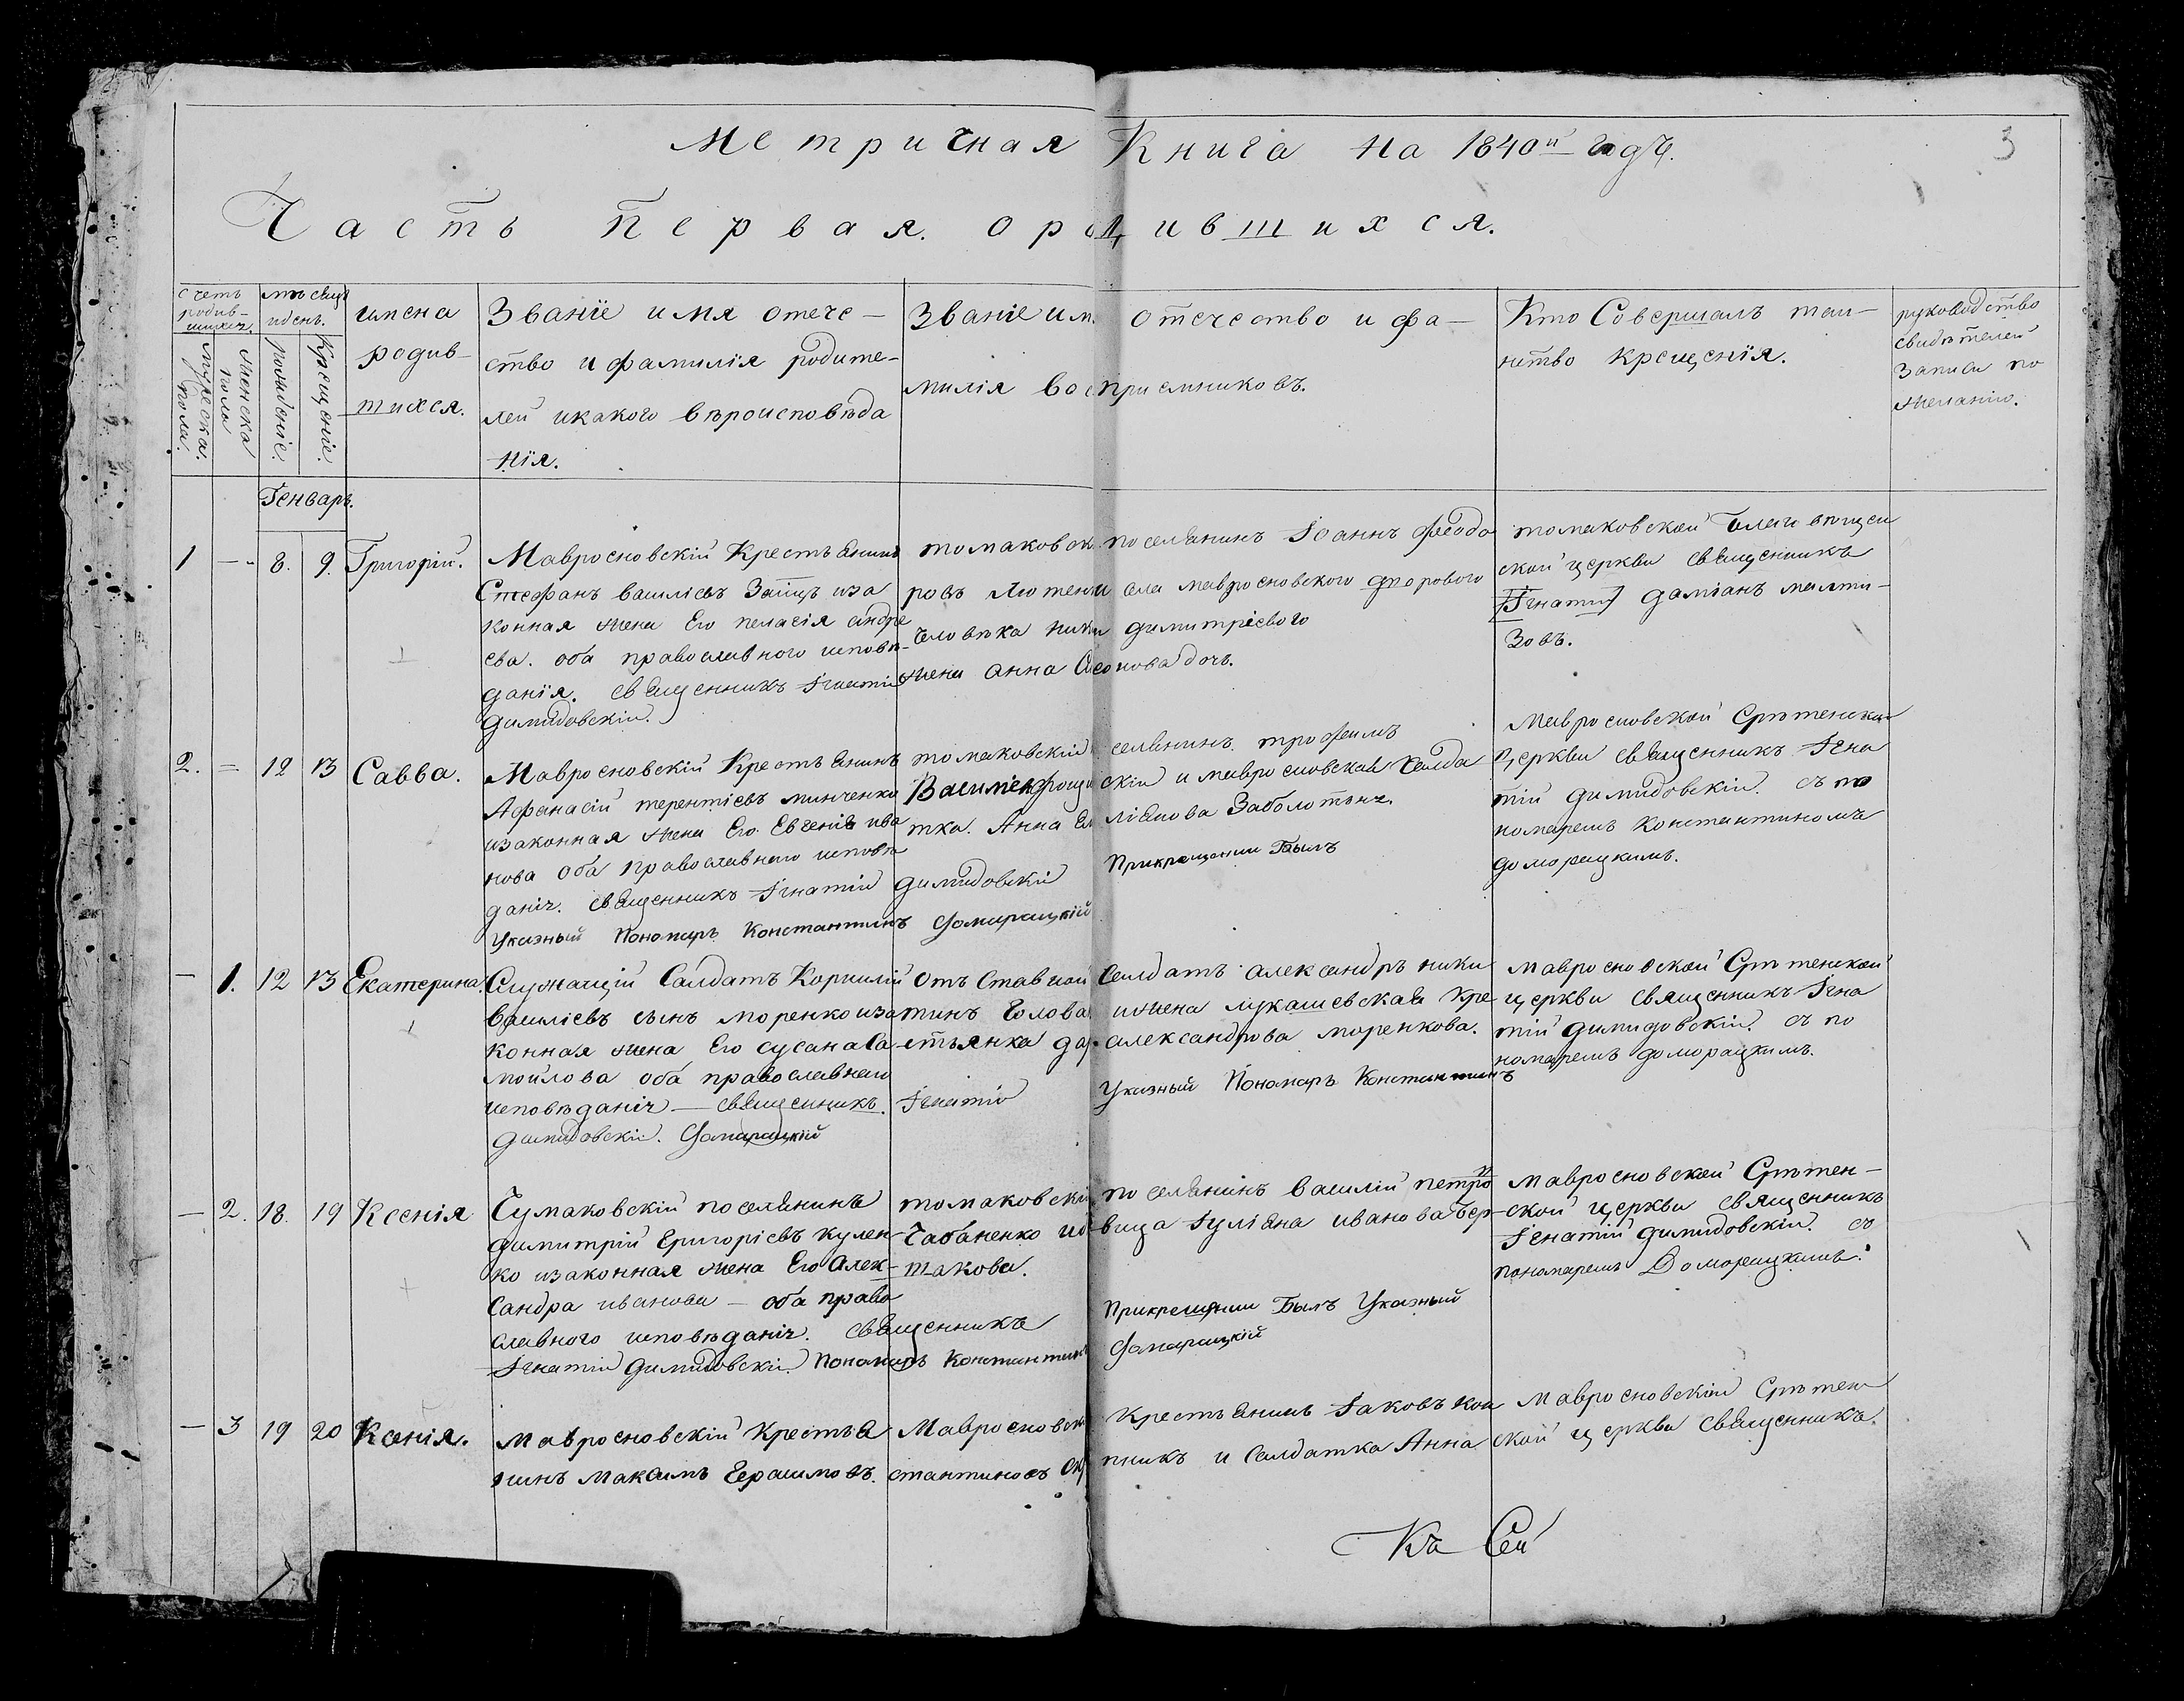 Метричная Книга на 1840й Годъ.
3
Часть первая. о родившихся.
счетъ родив-
шихся.
мужеска пола.
женска пола
мѣсяцъ
и день.
рожденіе.
Крещеніе.
имена
родив-
шихся.
Званіе имя отече-
ство и фамилія родите-
лей и какого вѣроисповѣда
нія.
Званіе им. отечество и фа-
милія воспріемниковъ.
Кто Совершалъ таи-
нство крещенія.
руководство
свидѣтелей
записи по
желанію.
Генварь.
1 — 8. 9. Григорій.
Мавросновскій Крестьянинъ
Стефанъ василіевъ Заіицъ иза
конная жена Его пелагія андре
ева. оба православного исповѣ-
данія. священникъ Ігнатій
димидовскій.
томаковск. поселянинъ Іоаннъ Феодо
ровъ Лютен села мавросновского дворового
человѣка ники димитріевого
жена анна Осонова дочь.
томаковской благовѣщен
ской церкви священникъ
Ігнатий даміанъ малти-
зовъ.
2. = 12 13 Савва.
Мавросновскій Крестьянинъ
Афанасій терентіевъ минченко
изаконная жена Его Евгенія ива
нова оба православного исповѣ
даніч. священникъ Ігнатій димидовскій
Указный Пономарь Константинъ Домарацкій
томаковскій селянинъ трофимъ
скій и мавросновская солда
тка. Анна Емліянова Заболотнч.
Прикрещении Былъ
Мавросновской Срѣтенской
церкви священникъ Ігна
тій димидовскій. съ по
номаремъ константиномъ
доморацкимъ.
— 1. 12 13 Екатерина.
Служащій Салдатъ Корнилій
василіевъ сынъ моренко иза
конная жена Его сусана Са
моилова оба православного
исповѣданіч — священникъ. Ігнатій
димидовскій. Домарацкій
отъ Ставной Солдатъ александръ ники
тинъ Голова и жена лукашевская кре
стьянка дар. александрова моренкова.
Указный Пономарь Константинъ
Мавросновской Срѣтенской
церкви священникъ Ігна
тій димидовскій. съ по
номаремъ доморацкимъ.
— 2. 18. 19 Ксенія
Чумаковскій поселянинъ
димитрій Григоріевъ кулен-
ко изаконная жена Его Алек-
сандра иванова — оба право
славного исповѣданіч. священникъ
Ігнатій димидовскій. Пономарь Константинъ
томаковскій поселянинъ василій петро
Чабаненко и вица Іуліяна иванова Бер-
такова.
Прикрещении Былъ Указный
Домарацкій
Мавросновской Срѣтен-
ской церкви священникъ
Ігнатій димидовскій. съ
пономаремъ Доморацкимъ.
— 3 19 20 Ксенія.
Мавросновскій Крестья
нинъ Максимъ Герасимовъ.
Мавросновск Крестьянинъ Іаковъ кон
стантиновъ пникъ и Солдатка Анна
Мавросновскій Срѣтен
ской церкви священникъ.
Къ Сей